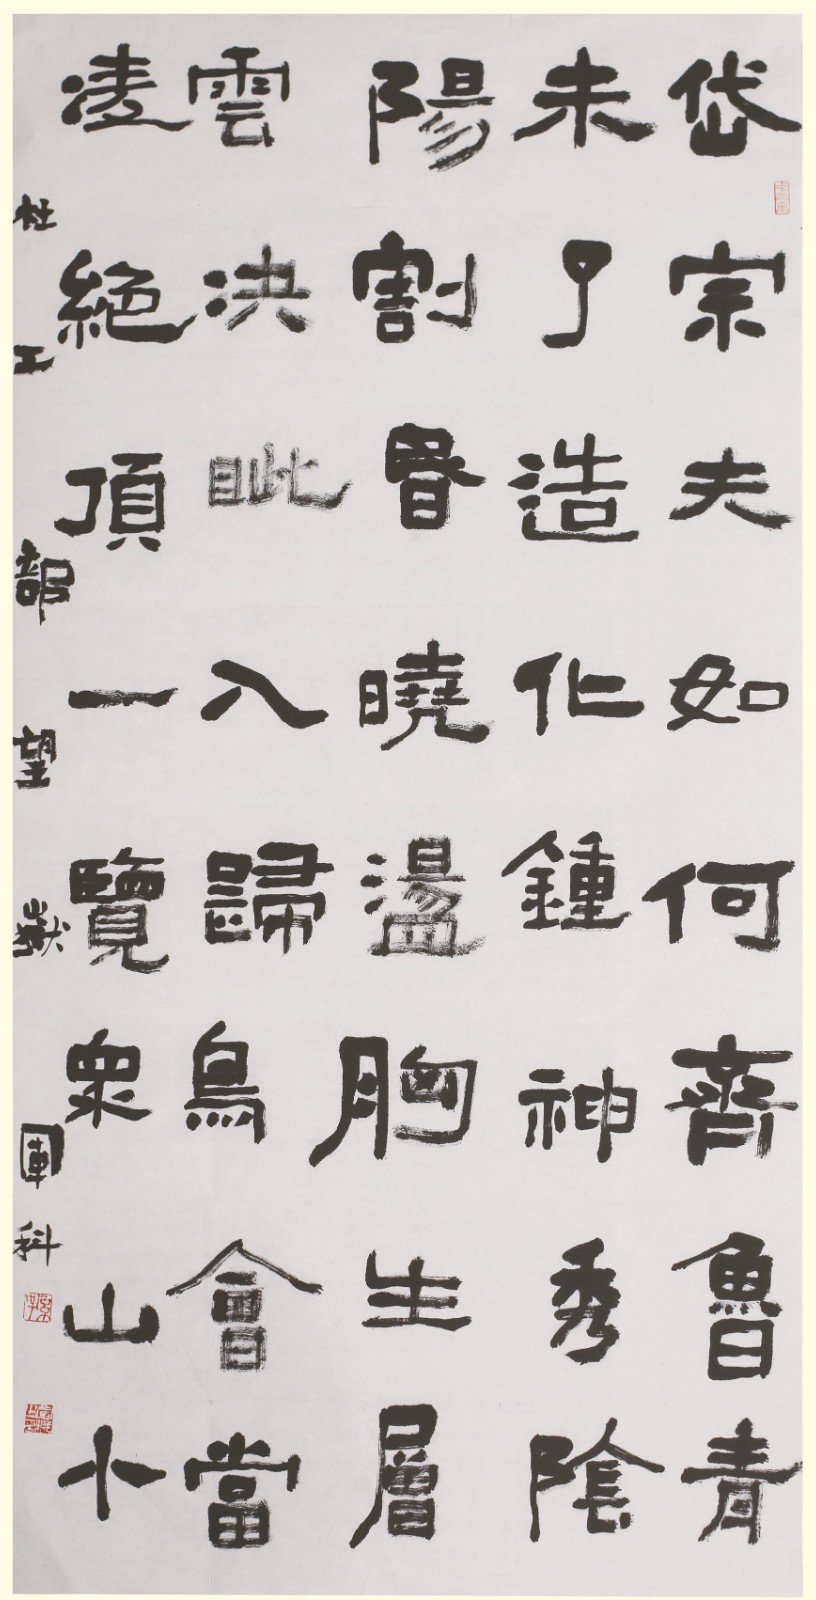 岱宗夫如何齊魯青
未了造化鍾神秀陰
陽割昬曉盪胸生層
雲決眦入歸鳥會當
凌絕頂一覽衆山小
杜工部望嶽 軍科